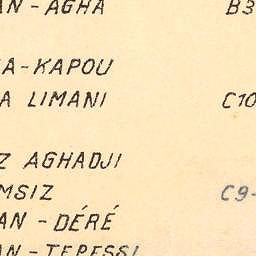 AN - AGHA B3
A-KAPOU
A LIMANI C10
Z AGHADJI
MSIZ C9-
AN - DÉRÉ
AN - TEPESSI